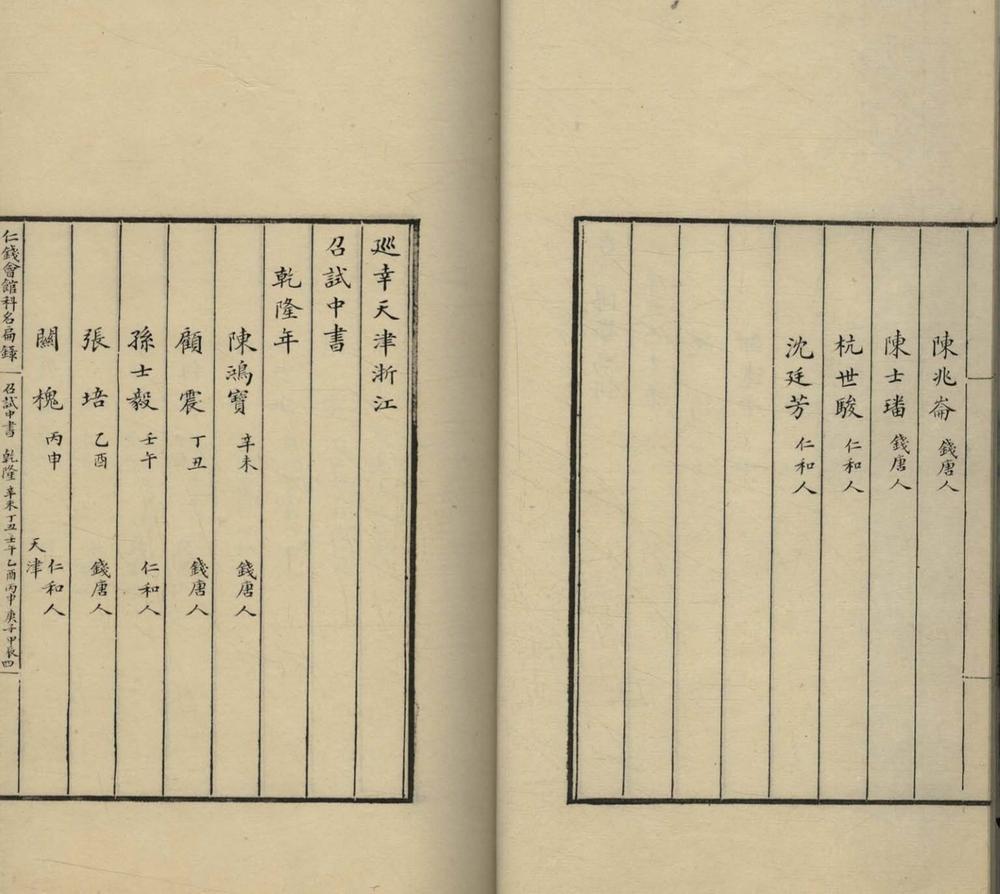 陳兆崙 錢唐人
陳士璠 錢唐人
杭世駿 仁和人
沈廷芳 仁和人
巡幸天津浙江
召試中書
乾隆年
陳鴻寶 辛未 錢唐人
顧震 丁丑 錢唐人
孫士毅 壬午 仁和人
張培 乙酉 錢唐人
關槐 丙申 天津 仁和人
仁錢會館科名扁錄 召試中書 乾隆 辛未丁丑壬午乙酉丙申庚子甲辰 四